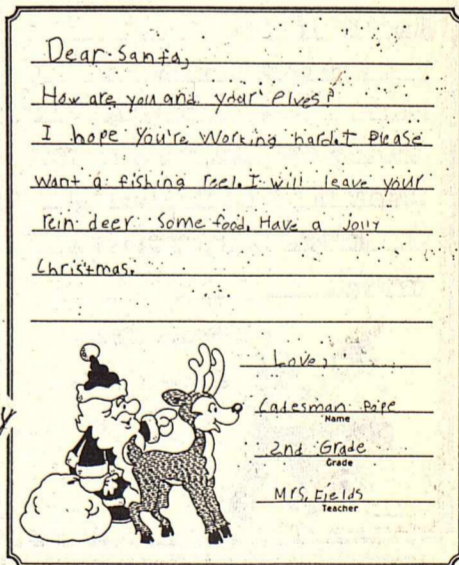 Dear Santa,
How are you and your elves?
I hope you're working hard. I please
want a fishing reel. I will leave your
rein deer some food. Have a jolly
Christmas.
Love,
Cadesman Pope
Name
2nd Grade
Grade
Mrs. Fields
Teacher